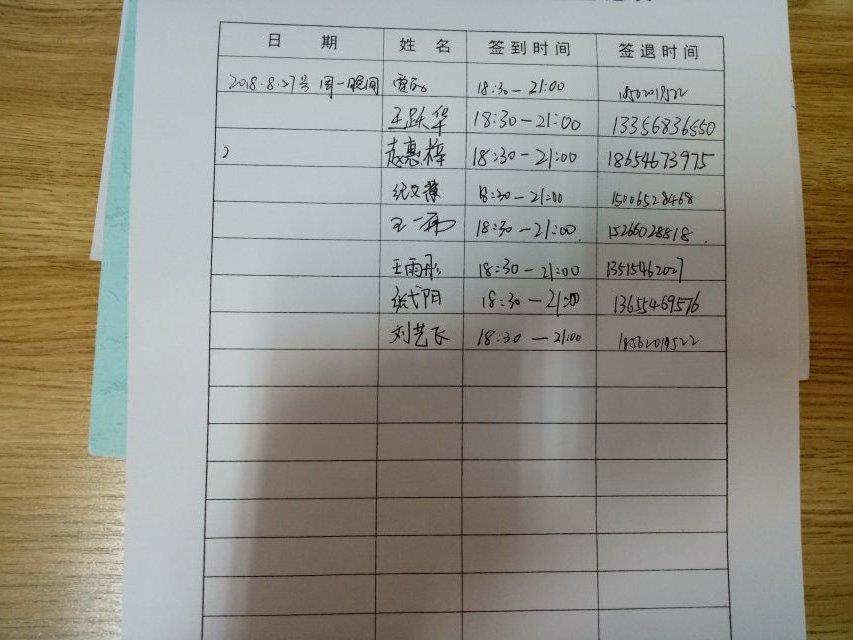 日 期 姓 名 签到时间 签退时间
2018.8.27号 周一晚间 18:30-21:00
王跃华 18:30-21:00 13356836550
赵惠梓 18:30-21:00 18654673975
纪文 18:30-21:00 15006528468
王一 18:30-21:00. 15266028818.
王雨彤 18:30-21:00 13515462027
张弋阳 18:30-21:00 13655469576
刘艺飞 18:30-21:00 18562019522